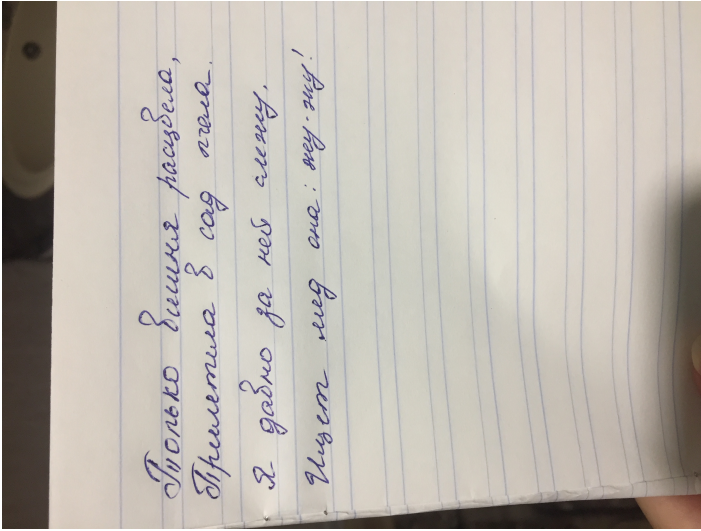 Только вишня расцвела,
Прилетела в сад пчела.
Я давно за ней слежу,
Ищет мед она: жу-жу!